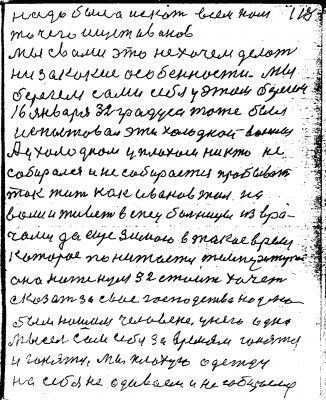 надо была искат всем ном 118
то чего и иуставанов
мы свами это не хочем делат
ни за какие особенности. мы
берегем сами себя у этой берегем
16 января 32 градуса тоже был
испытовал эти холодной волны
А у холодном у плахом никто не
собирался и не собирается пробыват
так жит как иванов жил на
воли и живет в спец больницы из вра-
чами да еще зимою в такое время
которое по нитости температуре
она ниже нуля 32 стоит хочет
сказат за свае господства надо
было нашим человеке, у него одно
мысел сам себи за времям гонятся
и гонятся, мы плахую одежду
на себя не одиваем и не собираемся